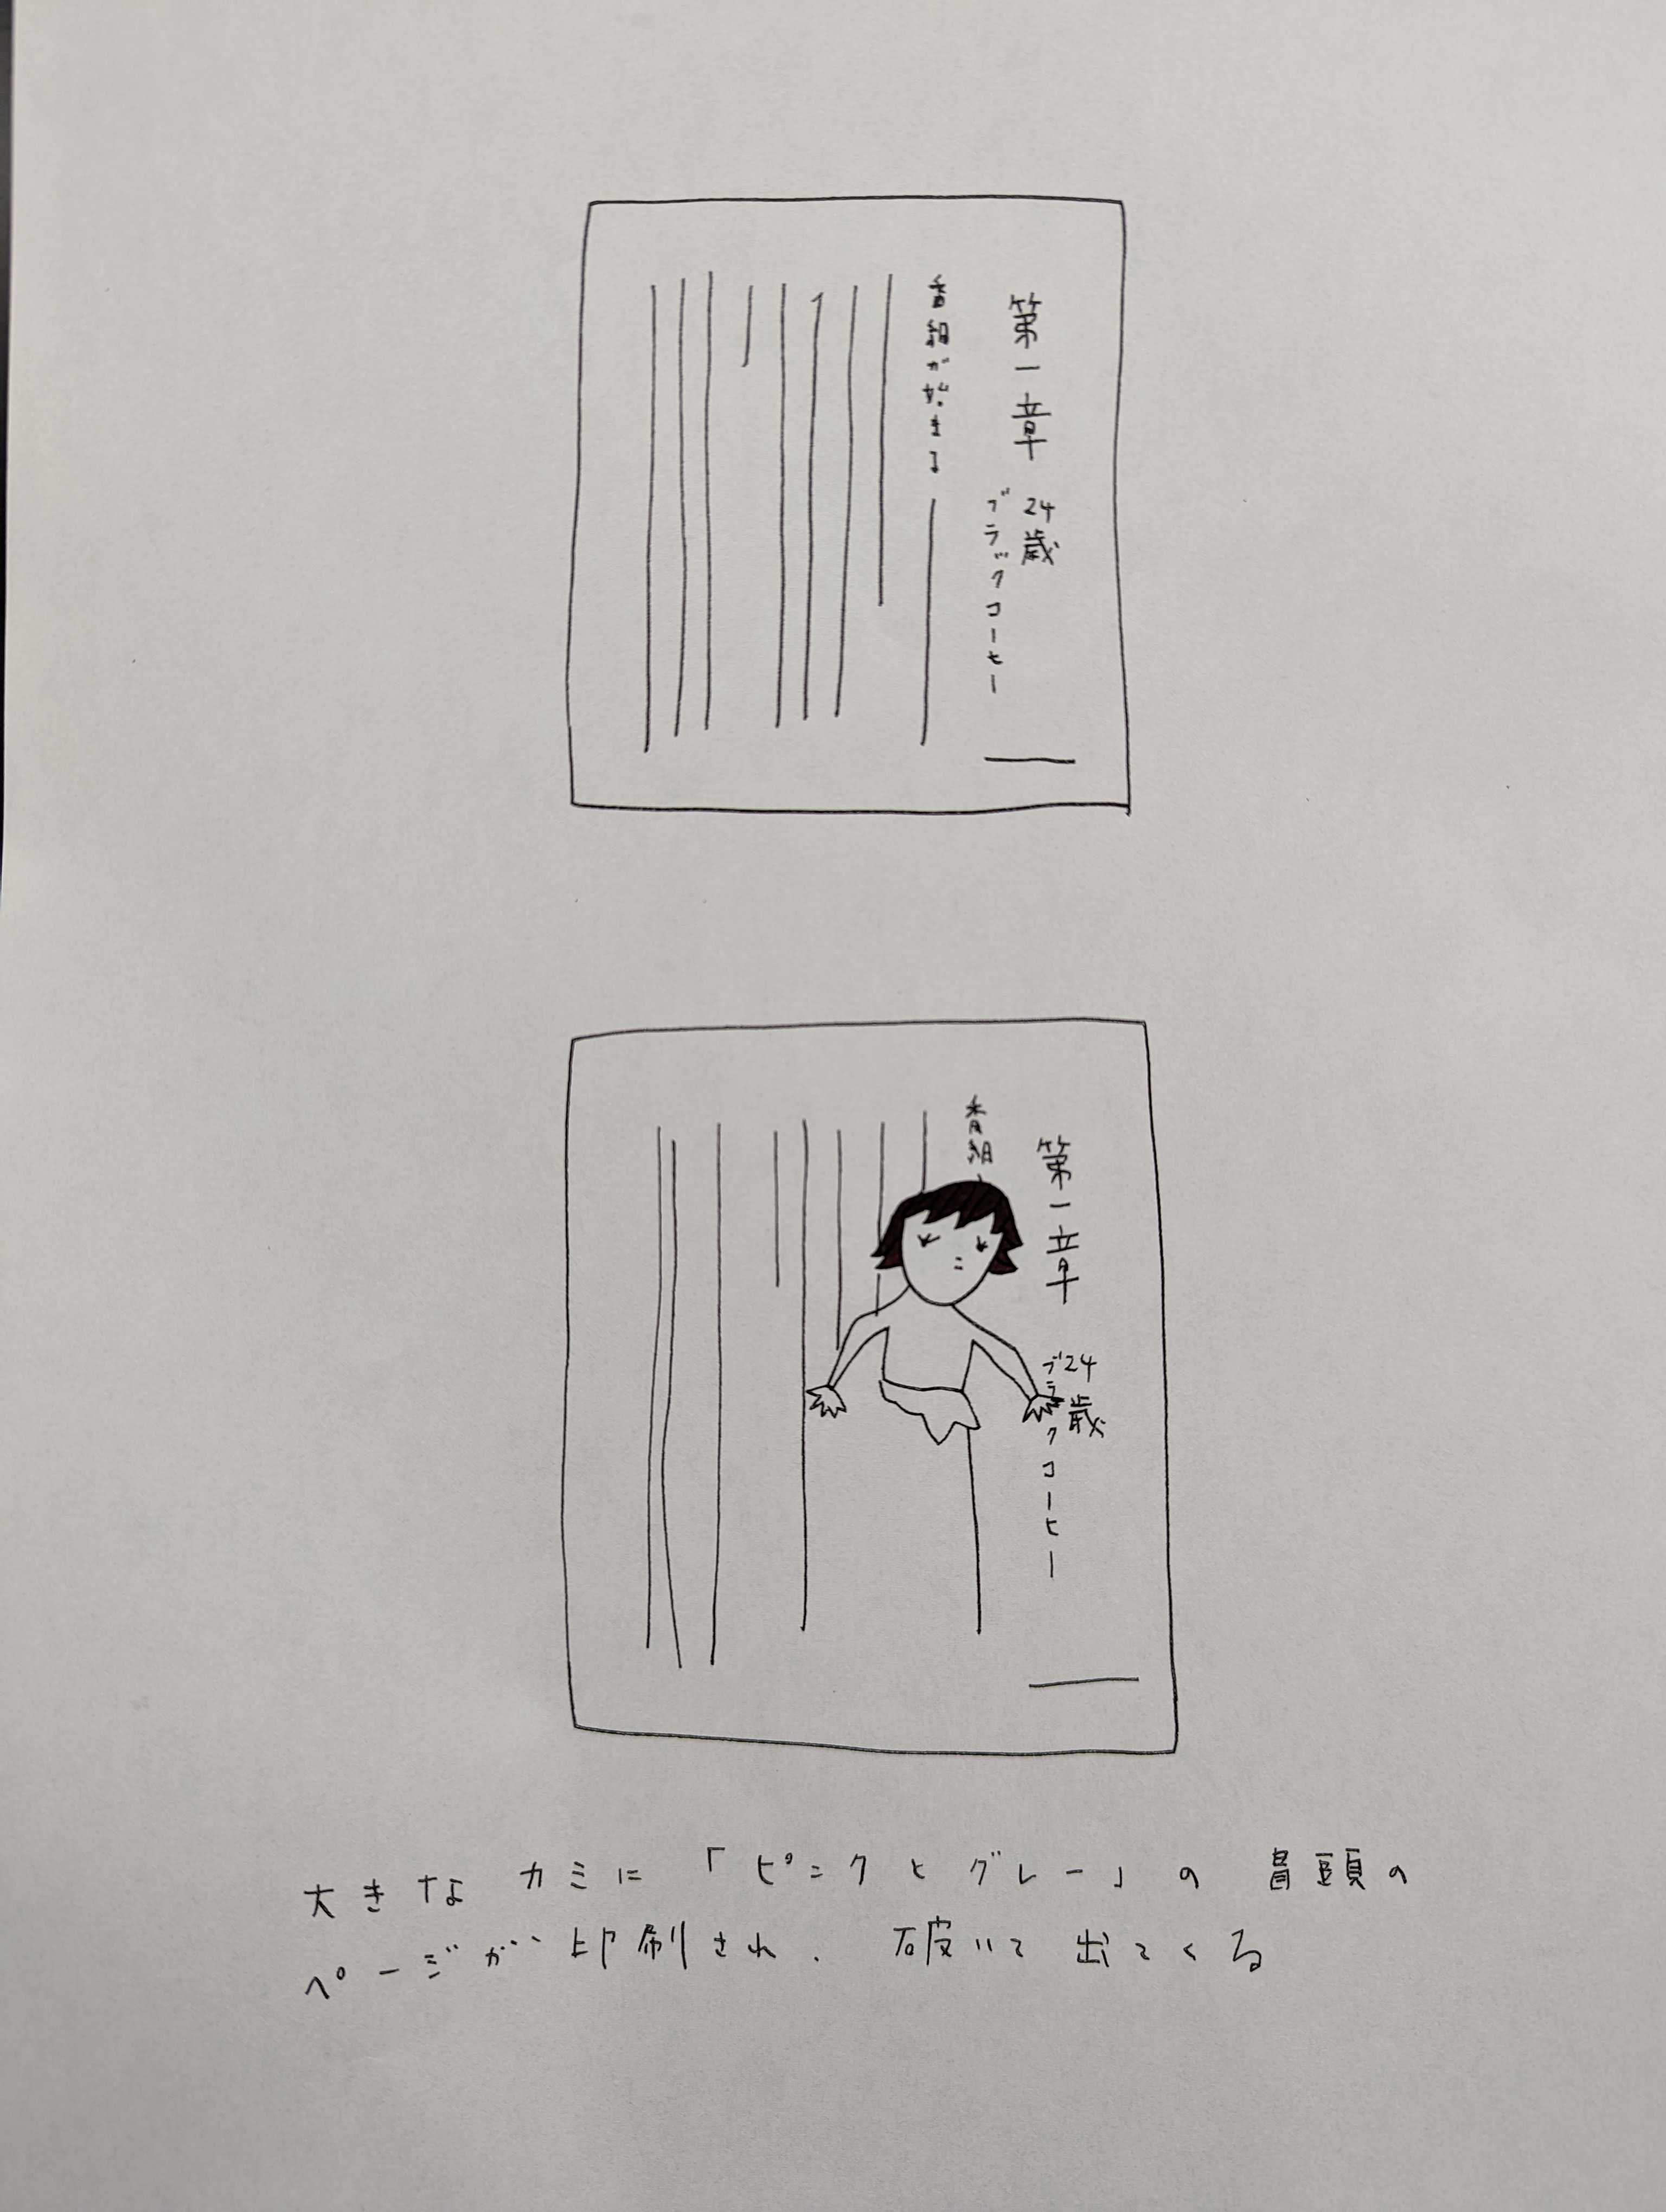 第一章
24歳
ブラックコーヒー
番組が始まる
第一章
24歳
ブラクコーヒー
番組
大きなカミに「ピンクとグレー」の冒頭の
ページが印刷され、破いて出てくる